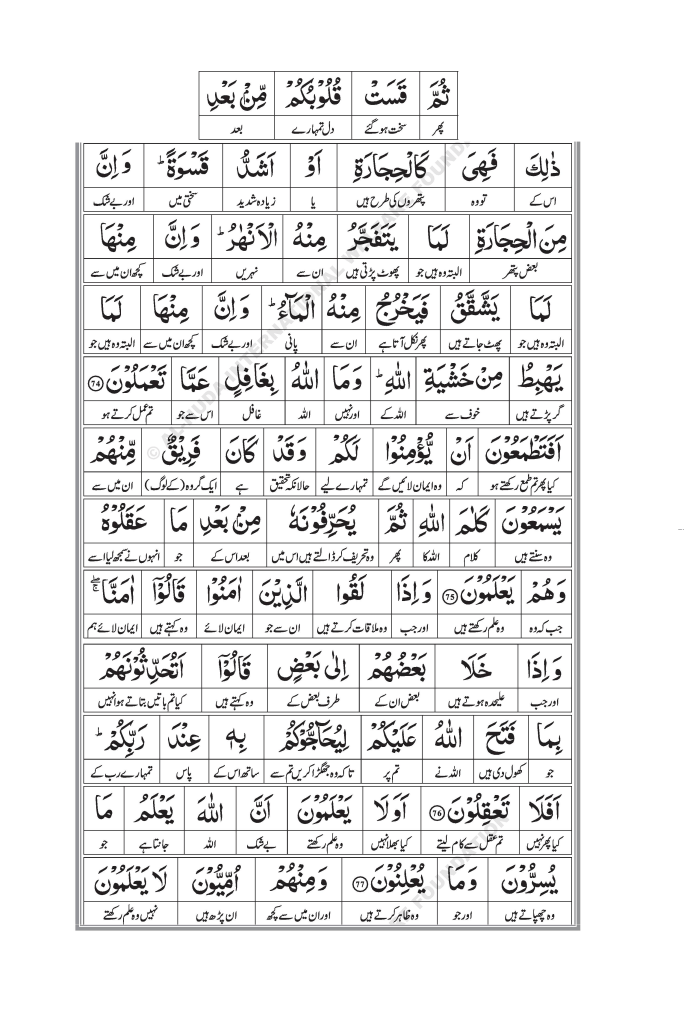 ثُمَّ قَسَتْ قُلُوْبُكُمْ مِّنْۢ بَعْدِ
پھر سخت ہوگئے دل تمہارے بعد
ذٰلِكَ فَهِیَ كَالْحِجَارَةِ اَوْ اَشَدُّ قَسْوَةً ؕ وَ اِنَّ
اس کے تو وہ پتھروں کی طرح ہیں یا زیادہ شدید سختی میں اور بے شک
مِنَ الْحِجَارَةِ لَمَا یَتَفَجَّرُ مِنْهُ الْاَنْهٰرُ ؕ وَ اِنَّ مِنْهَا
بعض پتھر البتہ وہ ہیں جو پھوٹ پڑتی ہیں ان سے نہریں اور بے شک کچھ ان میں سے
لَمَا یَشَّقَّقُ فَیَخْرُجُ مِنْهُ الْمَآءُ ؕ وَ اِنَّ مِنْهَا لَمَا
البتہ وہ ہیں جو پھٹ جاتے ہیں پھر نکل آتا ہے ان سے پانی اور بے شک کچھ ان میں سے البتہ وہ ہیں جو
یَهْبِطُ مِنْ خَشْیَةِ اللّٰهِ ؕ وَ مَا اللّٰهُ بِغَافِلٍ عَمَّا تَعْمَلُوْنَ 74
گر پڑتے ہیں خوف سے اللہ کے اور نہیں اللہ غافل اس سے جو تم عمل کرتے ہو
اَفَتَطْمَعُوْنَ اَنْ یُّؤْمِنُوْا لَكُمْ وَ قَدْ كَانَ فَرِیْقٌ مِّنْهُمْ
کیا پھر تم طمع رکھتے ہو کہ وہ ایمان لائیں گے تمہارے لیے حالانکہ تحقیق ہے ایک گروہ (کے لوگ) ان میں سے
یَسْمَعُوْنَ كَلٰمَ اللّٰهِ ثُمَّ یُحَرِّفُوْنَهٗ مِنْۢ بَعْدِ مَا عَقَلُوْهُ
وہ سنتے ہیں کلام اللہ کا پھر وہ تحریف کر ڈالتے ہیں اس میں بعد اس کے جو انہوں نے سمجھ لیا اسے
وَ هُمْ یَعْلَمُوْنَ 75 وَ اِذَا لَقُوا الَّذِیْنَ اٰمَنُوْا قَالُوْۤا اٰمَنَّا ۖۚ
جب کہ وہ وہ علم رکھتے ہیں اور جب وہ ملاقات کرتے ہیں ان سے جو ایمان لائے وہ کہتے ہیں ایمان لائے ہم
وَ اِذَا خَلَا بَعْضُهُمْ اِلٰی بَعْضٍ قَالُوْۤا اَتُحَدِّثُوْنَهُمْ
اور جب علیحدہ ہوتے ہیں بعض ان کے طرف بعض کے وہ کہتے ہیں کیا تم باتیں بتاتے ہو انہیں
بِمَا فَتَحَ اللّٰهُ عَلَیْكُمْ لِیُحَآجُّوْكُمْ بِهٖ عِنْدَ رَبِّكُمْ ؕ
جو کھول دی ہیں اللہ نے تم پر تاکہ وہ جھگڑا کریں تم سے ساتھ اس کے پاس تمہارے رب کے
اَفَلَا تَعْقِلُوْنَ 76 اَوَ لَا یَعْلَمُوْنَ اَنَّ اللّٰهَ یَعْلَمُ مَا
کیا پھر نہیں تم عقل سے کام لیتے کیا بھلا نہیں وہ علم رکھتے بے شک اللہ جانتا ہے جو
یُسِرُّوْنَ وَ مَا یُعْلِنُوْنَ 77 وَ مِنْهُمْ اُمِّیُّوْنَ لَا یَعْلَمُوْنَ
وہ چھپاتے ہیں اور جو وہ ظاہر کرتے ہیں اور ان میں سے کچھ ان پڑھ ہیں نہیں وہ علم رکھتے